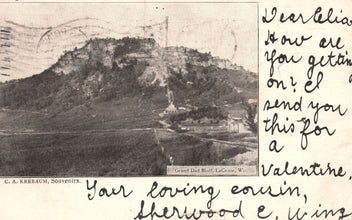 Dear Celia
How are
you getting
on? I
send you
this for
a
Valentine,
Grand Dad Bluff, LaCrosse, W
C. A. KREBAUM, Souvenirs.
Your loving cousin,
Sherwood C. Wing